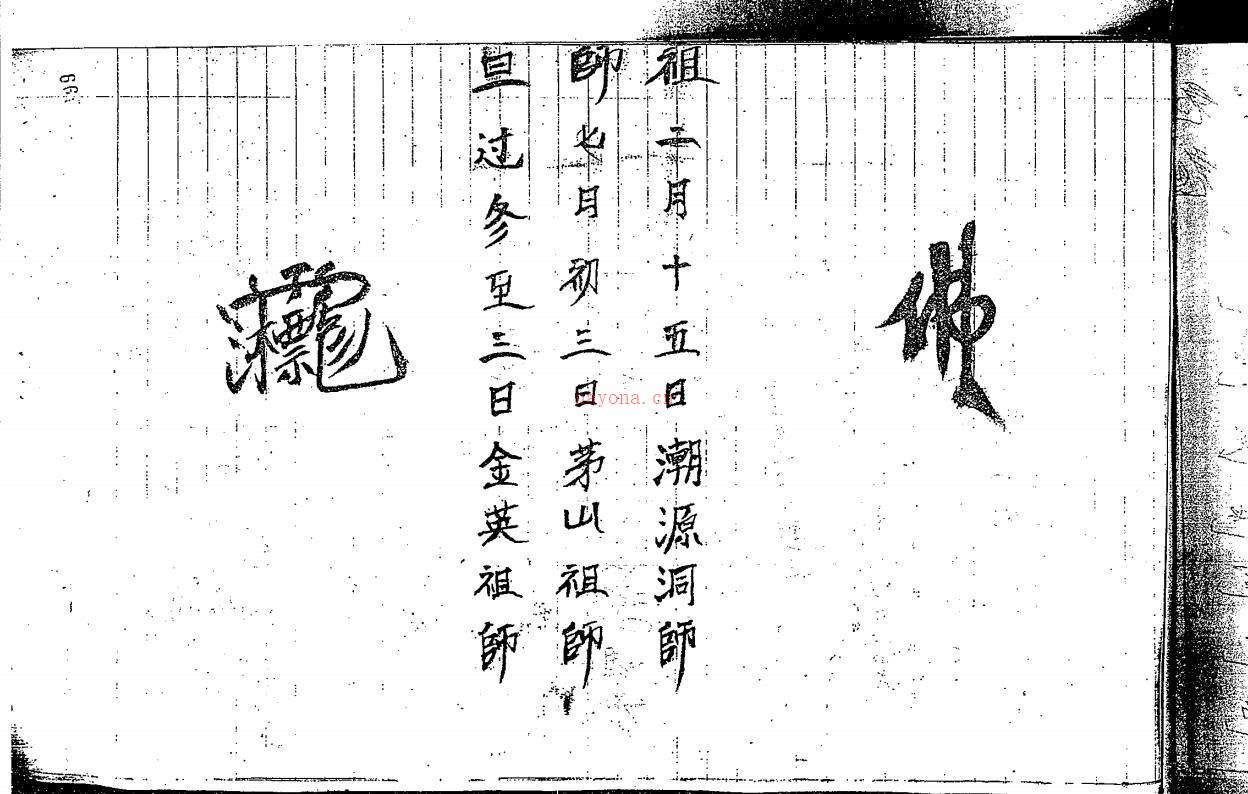 佛
祖二月十五日潮源洞師
師七月初三日茅山祖師
旦过冬至三日金英祖師
66